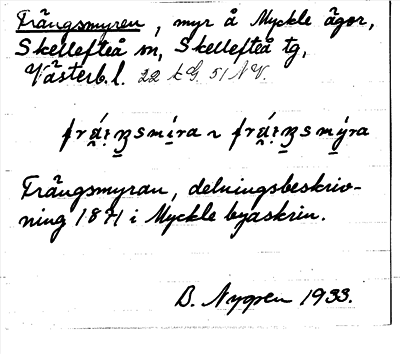 Trångsmyren, myr å Myckle ägor,
Skellefteå sn, Skellefteå tg,
Västerb. l. 22 k G. 51 NV.
Trångsmyran, delningsbeskriv-
ning 1871 i Myckle byaskrin.
B. Nygren 1933.